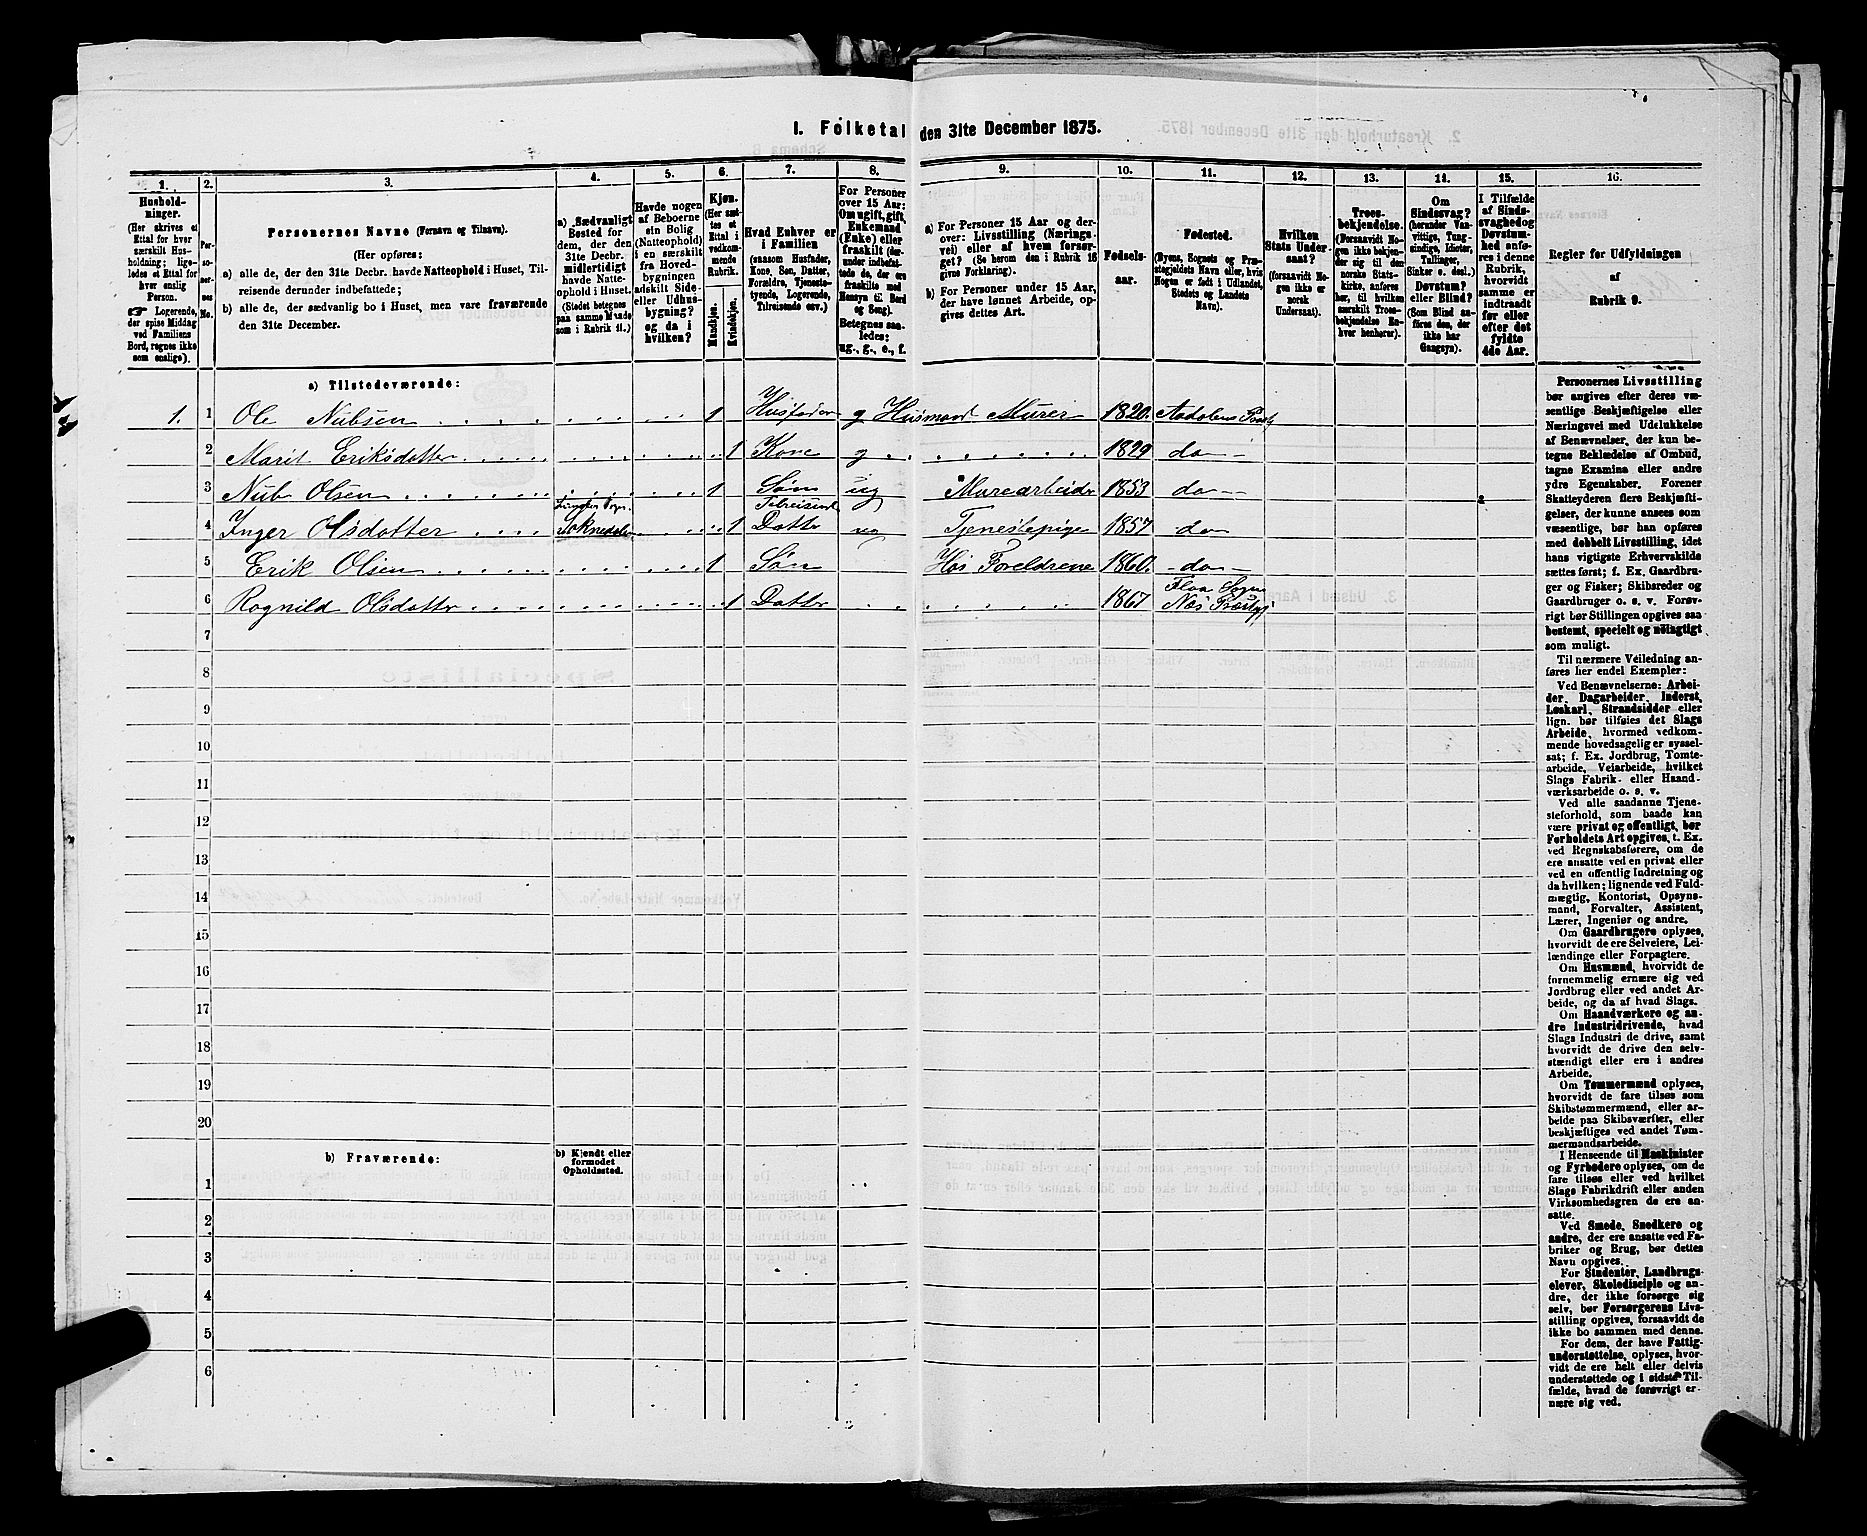 1. Folketal den 31te December 1875.
1.
Husholdninger.
(Her skrives et
Ettal for hver
særskilt Husholdning; ligeledes
et Ettal for
hver enslig
Person.
☞ Logerende,
der spise Middag
ved Familiens
Bord, regnes ikke
som enslige).
2.
Personernes
No.
3.
Personernes Navne (Fornavn og Tilnavn).
(Her opføres:
a) alle de, der den 31te Decbr. havde Natteophold i Huset, Tilreisende derunder indbefattede;
b) alle de, der sædvanlig bo i Huset, men vare fraværende
den 31te December.
4.
a) Sædvanligt
Bosted for
dem, der den
31te Decbr.
midlertidigt
havde Natteophold i Huset.
(Stedet betegnes
paa samme Maade
som i Rubrik 11.)
5.
Havde nogen
af Beboerne
sin Bolig
(Natteophold)
i en særskilt
fra Hovedbygningen
adskilt Side-
eller Udhusbygning?
og da i
hvilken?
6.
Kjøn.
(Her sættes
et
Ettal i
vedkommende
Rubrik.
Mandkjøn.
Kvindekjøn.
7.
Hvad Enhver er
i Familien
(saasom Husfader,
Kone, Søn, Datter,
Forældre, Tjenestetyende, Logerende,
Tilreisende osv.)
8.
For Personer
over 15 Aar:
Om ugift, gift,
Enkemand
(Enke) eller
fraskilt (derunder
indbefattede
de, der ere
fraskilte med
Hensyn til Bord
og Seng).
Betegnes saaledes:
ug., g., e., f.
9.
a) For Personer 15 Aar og derover: Livsstilling (Næringsvei) eller af hvem forsørget? (Se herom den i Rubrik 16
givne Forklaring).
b) For Personer under 15 Aar,
der have lønnet Arbeide, opgives dettes Art.
10.
Fødselsaar.
11.
Fødested.
(Byens, Sognets og Præstegjeldets Navn, eller, hvis
Nogen er født i Udlandet,
Stedets og Landets
Navn).
12.
Hvilken
Stats Undersaat?
(forsaavidt Nogen ikke er
norsk
Undersaat).
13.
Troesbekjendelse.
(Forsaavidt Nogen ikke bekjender sig til den
norske Statskirke, anføres
her, til hvilken
Troesbekjendelse Enhver henhører).
14.
Om
Sindssvag?
(herunder Vanvittige, Tungsindige, Idioter,
Tullinger,
Sinker o. desl.)
Døvstum?
eller Blind?
(Som Blind anføres den, der
ikke har
Gangsyn).
15.
I Tilfælde
af Sindssvaghed og
Døvstumhed anføres i denne
Rubrik,
hvorvidt
samme er
indtraadt
før eller
efter det
fyldte
4de Aar.
16.
Regler for Udfyldningen
af
Rubrik 9.
a) Tilstedeværende:
1. 1 Ole Nubsen 1 Husfader g Husmand Murer 1820. Aadalens Præstg
2 Marit Eriksdatter 1 Kone g 1829 do
3 Nub Olsen 1 Søn ug Murearbeider 1853 do
4 Inger Olsdatter Soknedalen 1 Tilreisende Datter ug Tjenestepige 1857 do
5 Erik Olsen 1 Søn Hos Foreldrene 1860. do
6 Rognild Olsdatter 1 Datter 1867 Flaa Sogn Næs Præstgj
7
8
9
10
11
12
13
14
15
16
17
18
19
20
b) Fraværende:
b) Kjendt eller
formodet
Opholdssted.
1
2
3
4
5
6
Personernes Livsstilling
bør angives efter deres væsentlige Beskjæftigelse eller
Næringsvei med Udelukkelse
af Benævnelser, der kun betegne Beklædelse af Ombud,
tagne Examina eller andre
ydre Egenskaber. Forener
Skatteyderen flere Beskjæftigelser, der kunne ansees som
væsentlige, bør han opføres
med dobbelt Livsstilling, idet
hans vigtigste Erhvervskilde
sættes først; f. Ex. Gaardbruger og Fisker; Skibsreder og
Gaardbruger o. s. v. Forøvrigt bør Stillingen opgives saa
bestemt, specielt og nøiagtigt
som muligt.
Til nærmere Veiledning anføres her endel Exempler:
Ved Benævnelserne: Arbeider, Dagarbeider, Inderst,
Løskarl, Strandsidder eller
lign. bør tilføies det Slags
Arbeide, hvormed vedkommende hovedsagelig er sysselsat; f. Ex. Jordbrug, Tomtearbeide, Veiarbeide, hvilket
Slags Fabrik- eller Haandværksarbeide o. s. v.
Ved alle saadanne Tjenesteforhold, som baade kan
være privat og offentligt, bør
Forholdets Art opgives, t. Ex.
ved Regnskabsførere, om de
ere ansatte ved en privat eller
ved en offentlig Indretning og
da hvilken; lignende ved Fuldmægtig, Kontorist, Opsynsmand, Forvalter, Assistent,
Lærer, Ingeniør og andre.
Om Gaardbrugere oplyses,
hvorvidt de ere Selveiere, Leilændinge eller Forpagtere.
Om Husmænd, hvorvidt de
fornemmelig ernære sig ved
Jordbrug eller ved andet Arbeide, og da af hvad Slags.
Om Haandværkere og andre Industridrivende, hvad
Slags Industri de drive, samt
hvorvidt de drive den selvstændigt eller ere i andres
Arbeide.
Om Tømmermænd oplyses,
hvorvidt de fare tilsøs som
Skibstømmermænd, eller arbeide paa Skibsværfter, eller
beskjæftiges ved andet Tømmermandsarbeide.
I Henseende til Maskinister
og Fyrbødere oplyses, om de
fare tilsøs eller ved hvilket
Slags Fabrikdrift eller anden
Virksomhedsgren de ere ansatte.
Ved Smede, Snedkere og
andre, der ere ansatte ved Fabriker og Brug, bør dettes
Navn opgives.
For Studenter, Landbrugselever, Skoledisciple og andre, der ikke forsørge sig
selv, bør Forsørgerens Livsstilling opgives, forsaavidt de
ikke bo sammen med denne.
For dem, der have Fattigunderstøttelse, oplyses, hvorvidt de ere helt eller delvis
understøttede og i sidste Tilfælde, hvad de forøvrigt ernære sig ved.